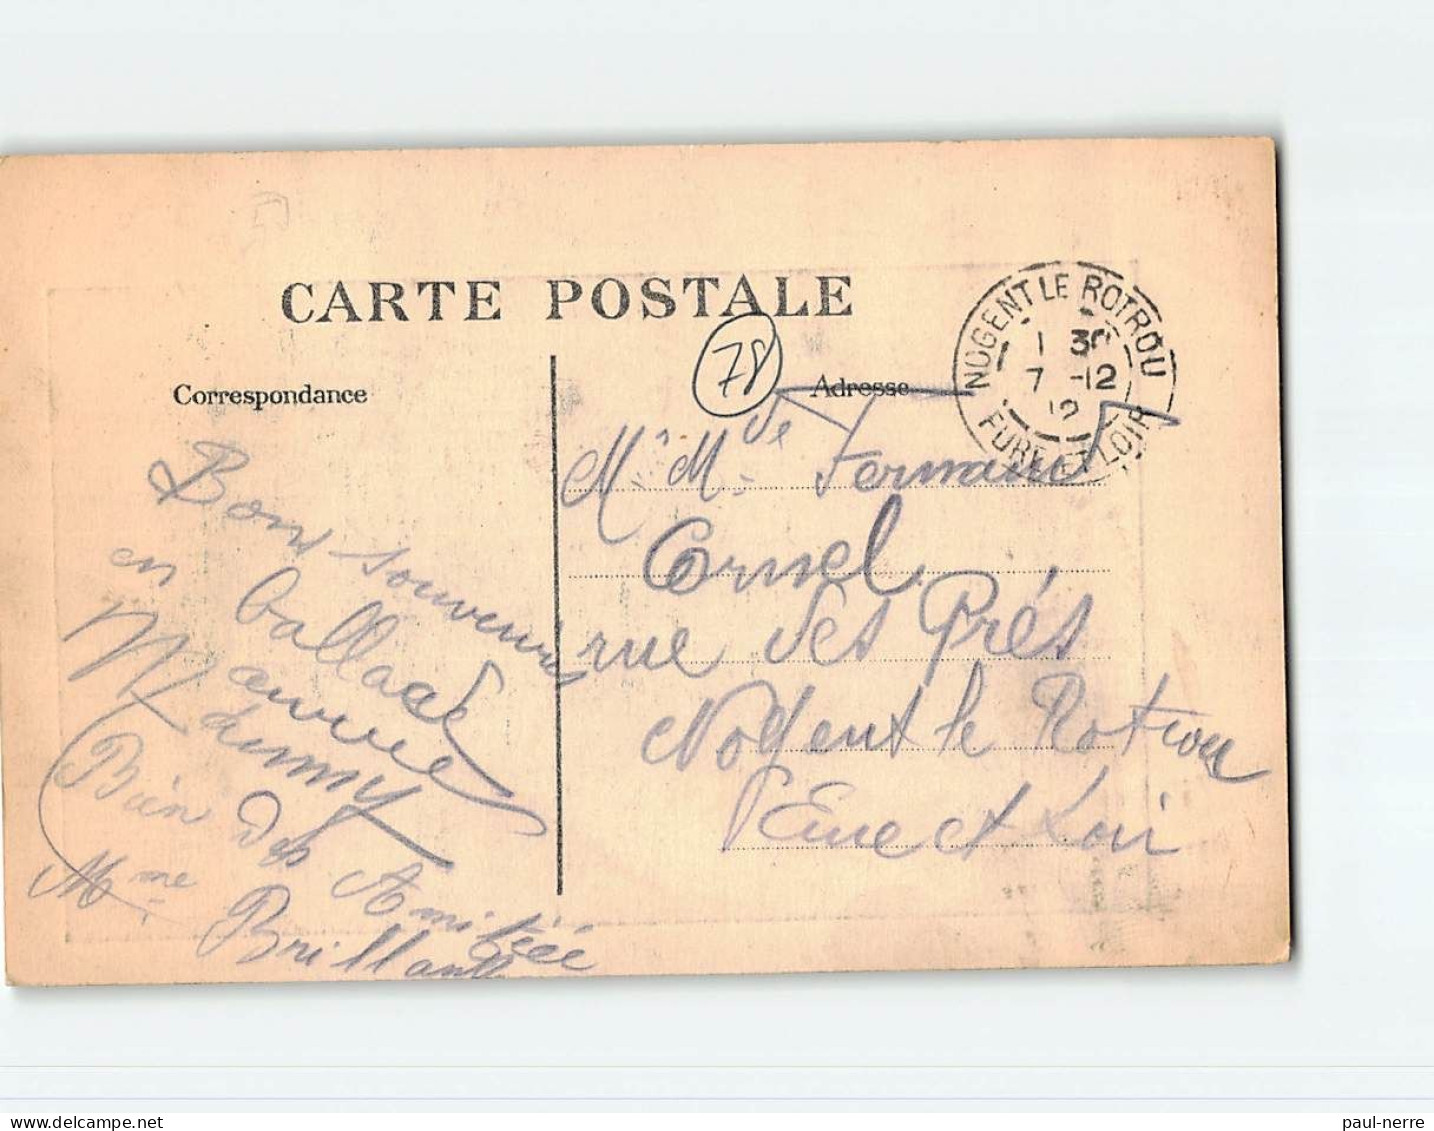 CARTE POSTALE
Correspondance
Adresse
78
NOGENT LE ROTROU
1 30
7 -12
12
EURE ET LOIR
Bons souvenirs
en ballade
Bien des Amitiée
Mme Brillant
Mr Mme Fernand
Cornel
rue des Prés
Nogent le Rotrou
Eure et Loir
paul-nerre
delcampe.net